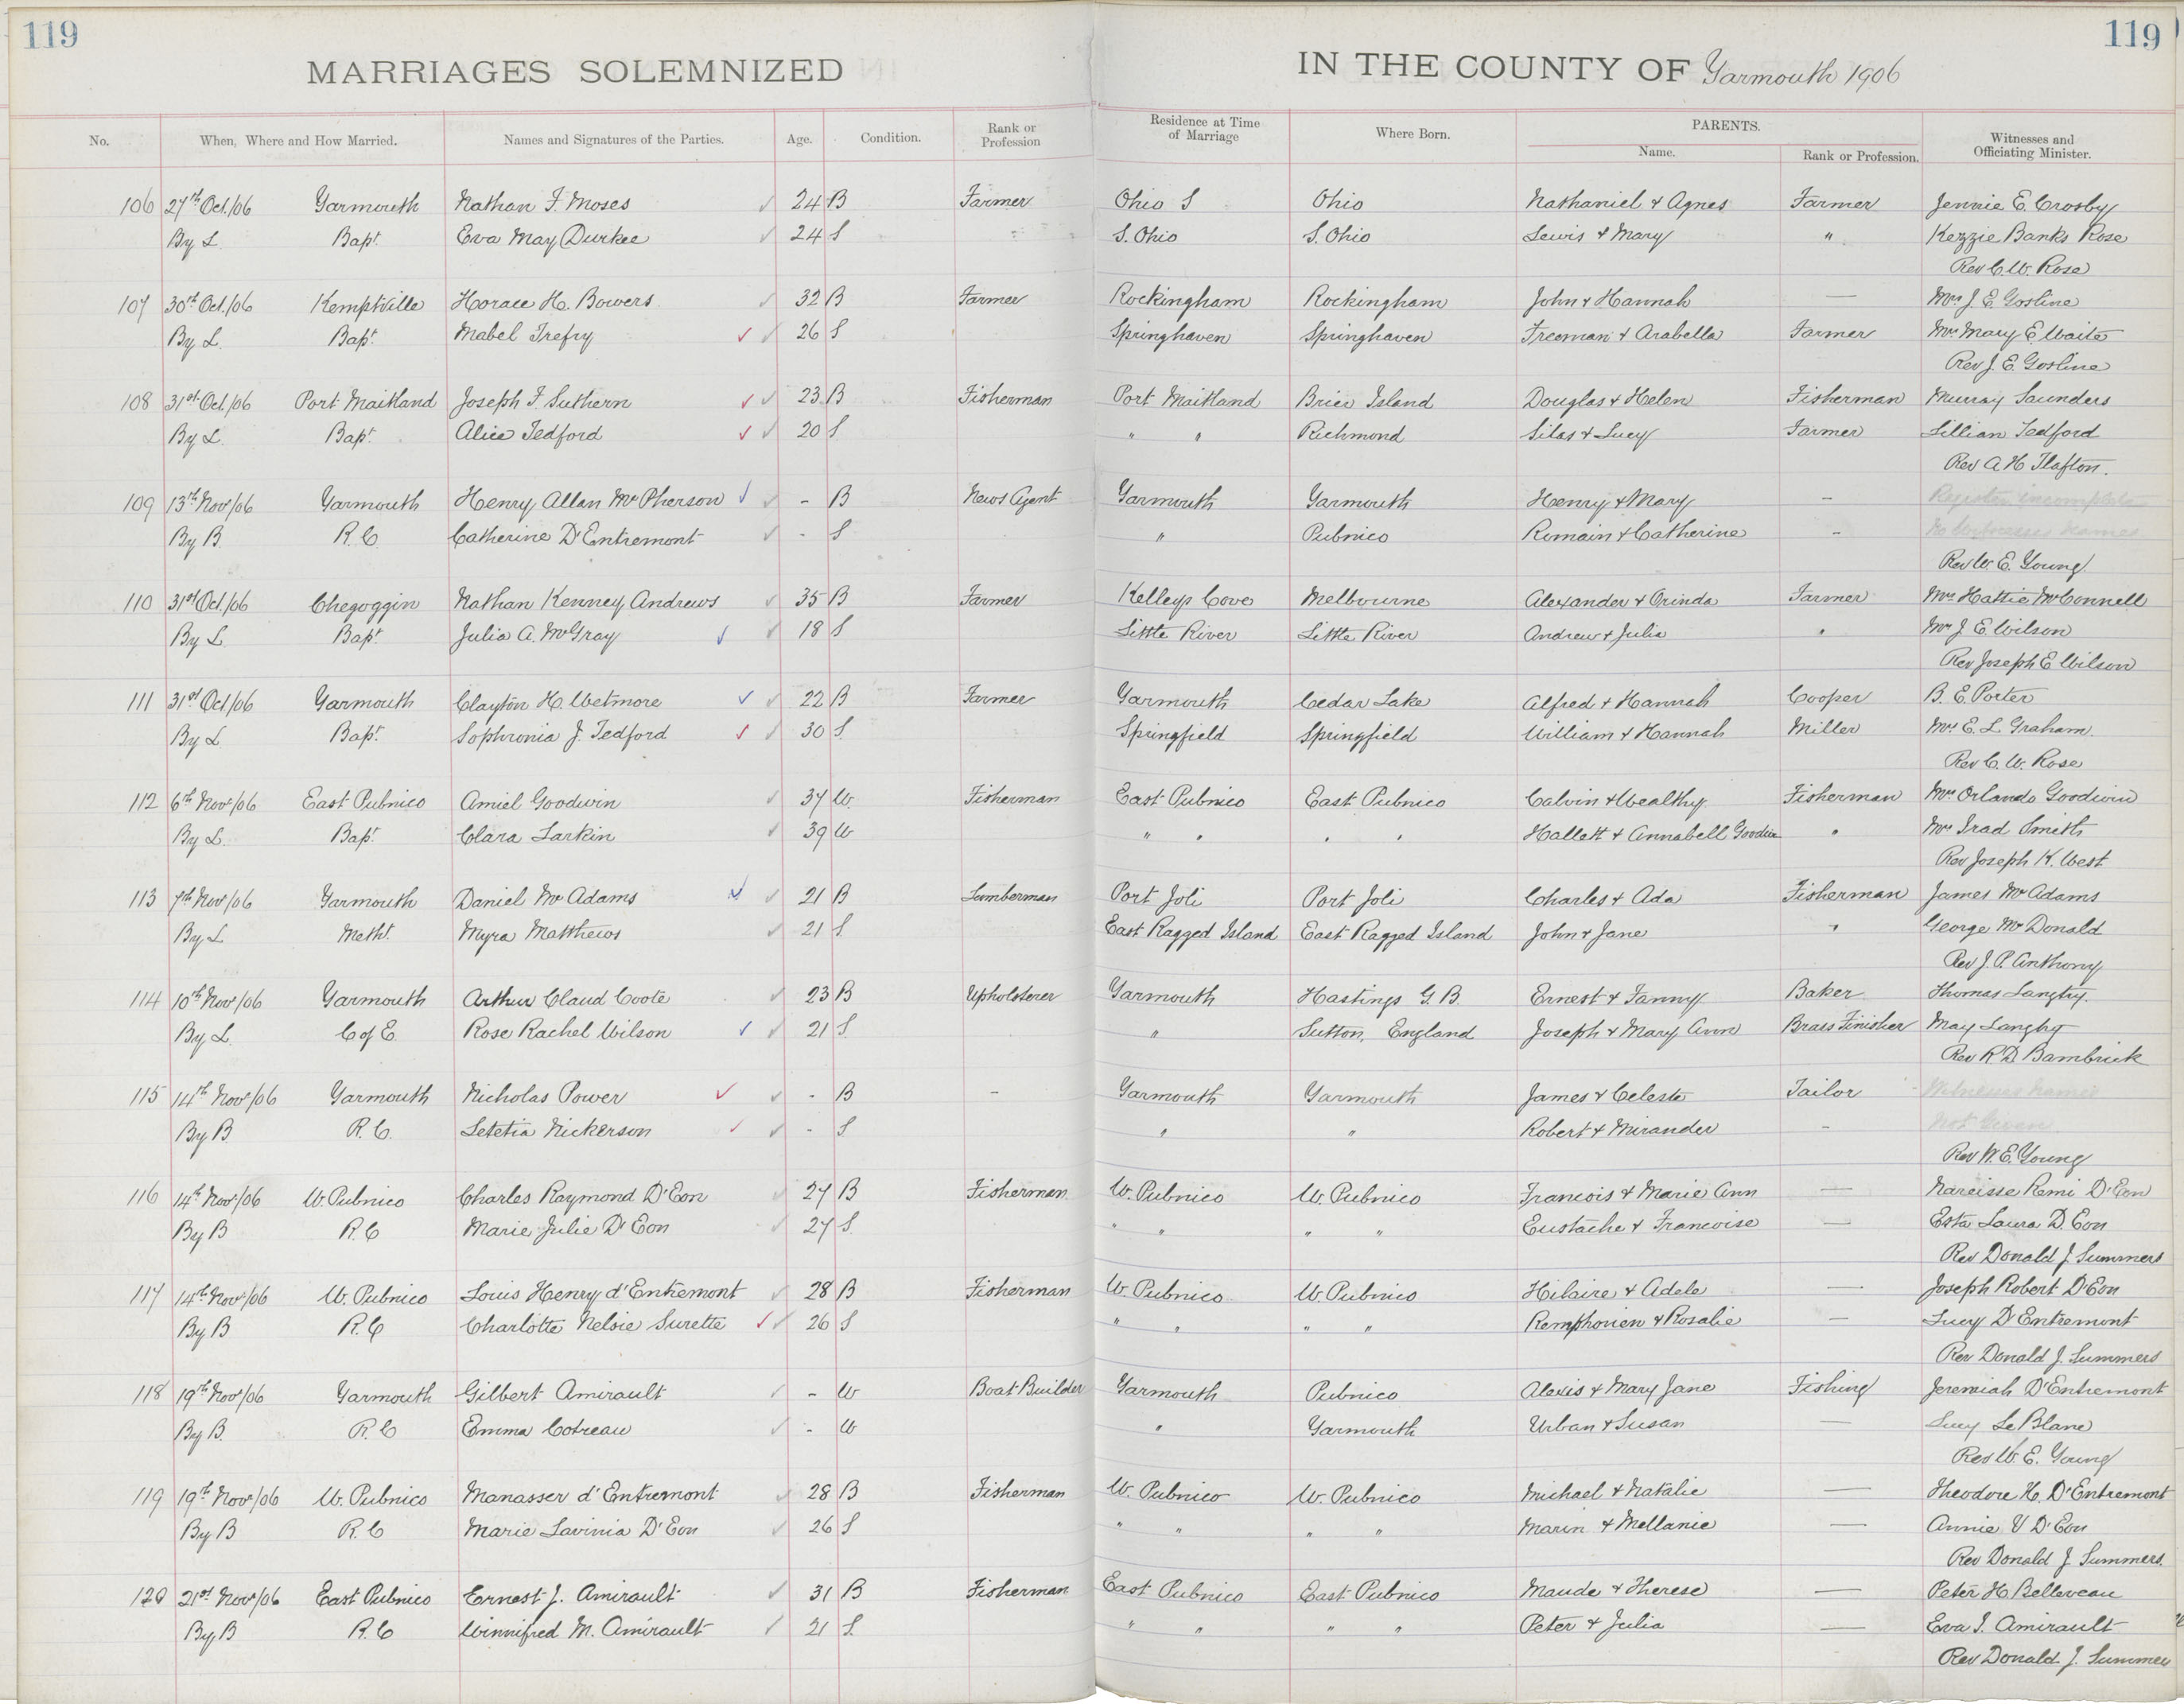 119
119
MARRIAGES SOLEMNIZED IN THE COUNTY OF Yarmouth 1906
No. When, Where and How Married. Names and Signatures of the Parties. Age. Condition. Rank or Profession Residence at Time of Marriage Where Born. PARENTS. Name. Rank or Profession. Witnesses and Officiating Minister.
106 27th Oct./06 Yarmouth Nathan F. Moses 24 B Farmer Ohio S Ohio Nathaniel & Agnes Farmer Jennie E. Crosby
By L. Bapt. Eva May Durkee 24 S S. Ohio S. Ohio Lewis & Mary " Kezzie Banks Rose
Rev C. W. Rose
107 30th Oct./06 Kemptville Horace H. Bowers 32 B Farmer Rockingham Rockingham John & Hannah — Mrs J. E. Gosline
By L. Bapt. Mabel Trefry 26 S Springhaven Springhaven Freeman & Arabella Farmer Mrs Mary E. Waite
Rev J. E. Gosline
108 31st Oct./06 Port Maitland Joseph F. Suthern 23 B Fisherman Port Maitland Brier Island Douglas & Helen Fisherman Murray Saunders
By L. Bapt. Alice Tedford 20 S " " Richmond Silas & Lucy Farmer Lillian Tedford
Rev A H
109 13th Nov/06 Yarmouth Henry Allan McPherson - B News Agent Yarmouth Yarmouth Henry & Mary - Register incomplete
By B. R. C. Catherine D'Entremont - S " Pubnico Romain & Catherine - No Witnesses names
Rev W. E. Young
110 31st Oct./06 Chegoggin Nathan Kenney Andrews 35 B Farmer Kelleys Cove Melbourne Alexander & Orinda Farmer Mrs Hattie McConnell
By L. Bapt. Julia A. McGray 18 S Little River Little River Andrew & Julia " Mrs J. E. Wilson
Rev Joseph E Wilson
111 31st Oct/06 Yarmouth Clayton H. Wetmore 22 B Farmer Yarmouth Cedar Lake Alfred & Hannah Cooper B. E. Porter
By L. Bapt. Sophronia J. Tedford 30 S. Springfield Springfield William & Hannah Miller Mrs E. L. Graham.
Rev C. W. Rose
112 6th Nov/06 East Pubnico Amiel Goodwin 37 W. Fisherman East Pubnico East Pubnico Calvin & Wealthy Fisherman Mrs Orlando Goodwin
By L. Bapt. Clara Larkin 39 W " " " " Hallett & Annabell Goodwin " Mrs Irad Smith
Rev Joseph K. West.
113 7th Nov/06 Yarmouth Daniel McAdams 21 B Lumberman Port Joli Port Joli Charles & Ada Fisherman James McAdams
By L Metht. Myra Matthews 21 S East Ragged Island East Ragged Island John & Jane " George McDonald
Rev J. P. Anthony
114 10th Nov/06 Yarmouth Arthur Claud Coote 23 B Upholsterer Yarmouth Hastings G. B. Ernest & Fanny Baker Thomas Langtry.
By L. C of E. Rose Rachel Wilson 21 S. " Sutton, England Joseph & Mary Ann Brass Finisher May Langtry
Rev R D Bambrick
115 14th Nov/06 Yarmouth Nicholas Power - B - Yarmouth Yarmouth James & Celeste Tailor Witnesses names
By B R. C. Letetia Nickerson - S " " Robert & Mirander - Not Given
Rev W. E. Young
116 14th Nov/06 W. Pubnico Charles Raymond D'Eon 27 B Fisherman W. Pubnico W. Pubnico Francois & Marie Ann — Narcisse Remi D'Eon
By B R. C Marie Julie D'Eon 27 S. " " " " Eustache & Francoise — Esta Laura D. Eon
Rev Donald J Summers
117 14th Nov/06 W. Pubnico Louis Henry d'Entremont 28 B Fisherman W. Pubnico W. Pubnico Hilaire & Adele — Joseph Robert D'Eon
By B R. C Charlotte Nelsie Surette 26 S " " " " Remphonien & Rosalie — Lucy D'Entremont
Rev Donald J. Summers
118 19th Nov/06 Yarmouth Gilbert Amirault - W Boat Builder Yarmouth Pubnico Alexis & Mary Jane Fishing Jeremiah D'Entremont
By B. R. C Emma Cotreau - W " Yarmouth Urban & Susan — Lucy Le Blanc
Rev W. E. Young
119 19th Nov/06 W. Pubnico Manasser d'Entremont 28 B Fisherman W. Pubnico W. Pubnico Michael & Natalie — Theodore H. D'Entremont
By B R. C Marie Lavinia D'Eon 26 S " " " " Marin & Mellanie — Annie V D'Eon
Rev Donald J. Summers.
120 21st Nov/06 East Pubnico Ernest J. Amirault 31 B Fisherman East Pubnico East Pubnico Maude & Therese — Peter H. Belleveau
By B R. C Winnifred M. Amirault 21 S. " " " " Peter & Julia — Eva I. Amirault
Rev Donald J. Summers